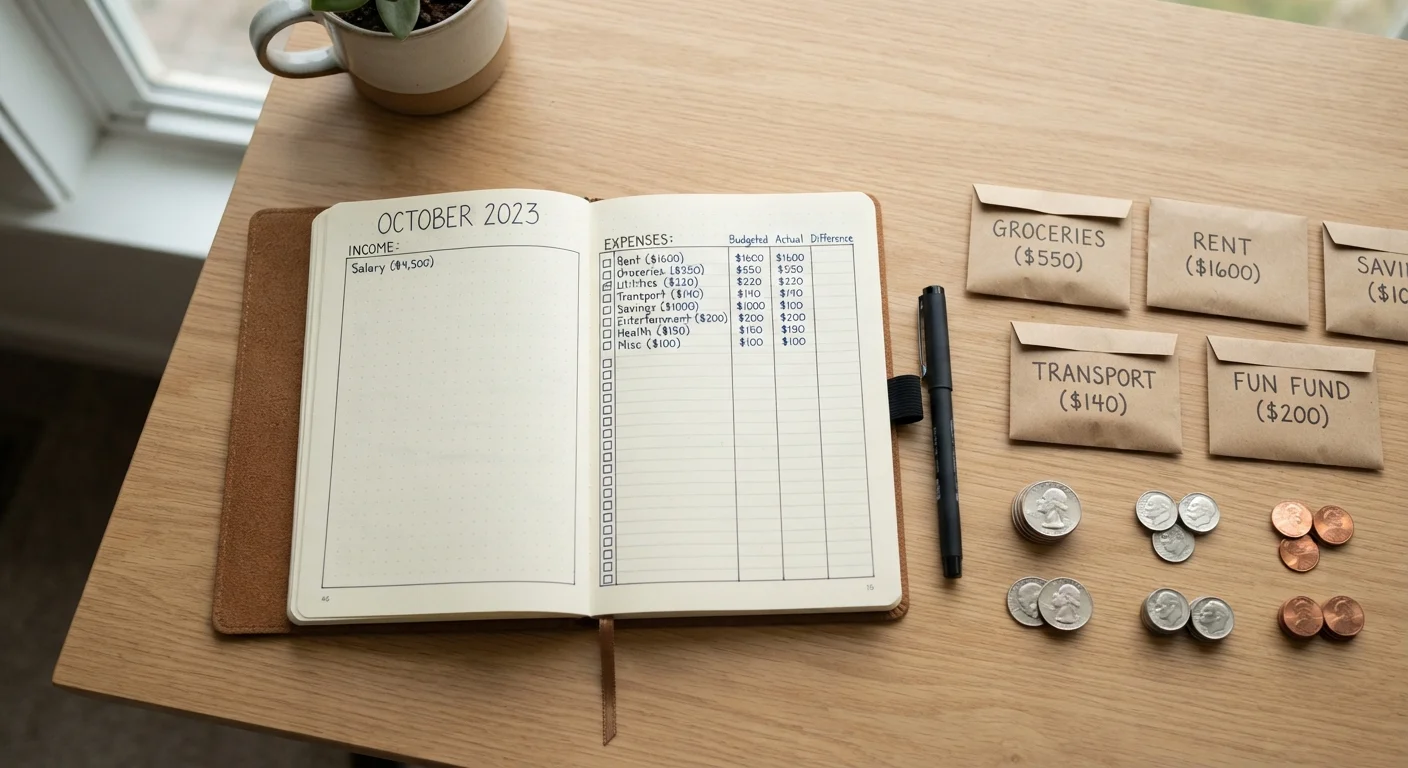 OCTOBER 2023
INCOME:
Salary ($4,500)
EXPENSES: Budgeted Actual Difference
Rent ($1600) $1600 $1600
Groceries $550
Utilities ($220) $220 $220
Transport ($140) $140 $140
Savings ($1000) $1000 $100
Entertainment ($200) $200 $200
Health $190
Misc ($100) $100 $100
GROCERIES
($550)
RENT
($1600)
SAVI
($10
TRANSPORT
($140)
FUN FUND
($200)